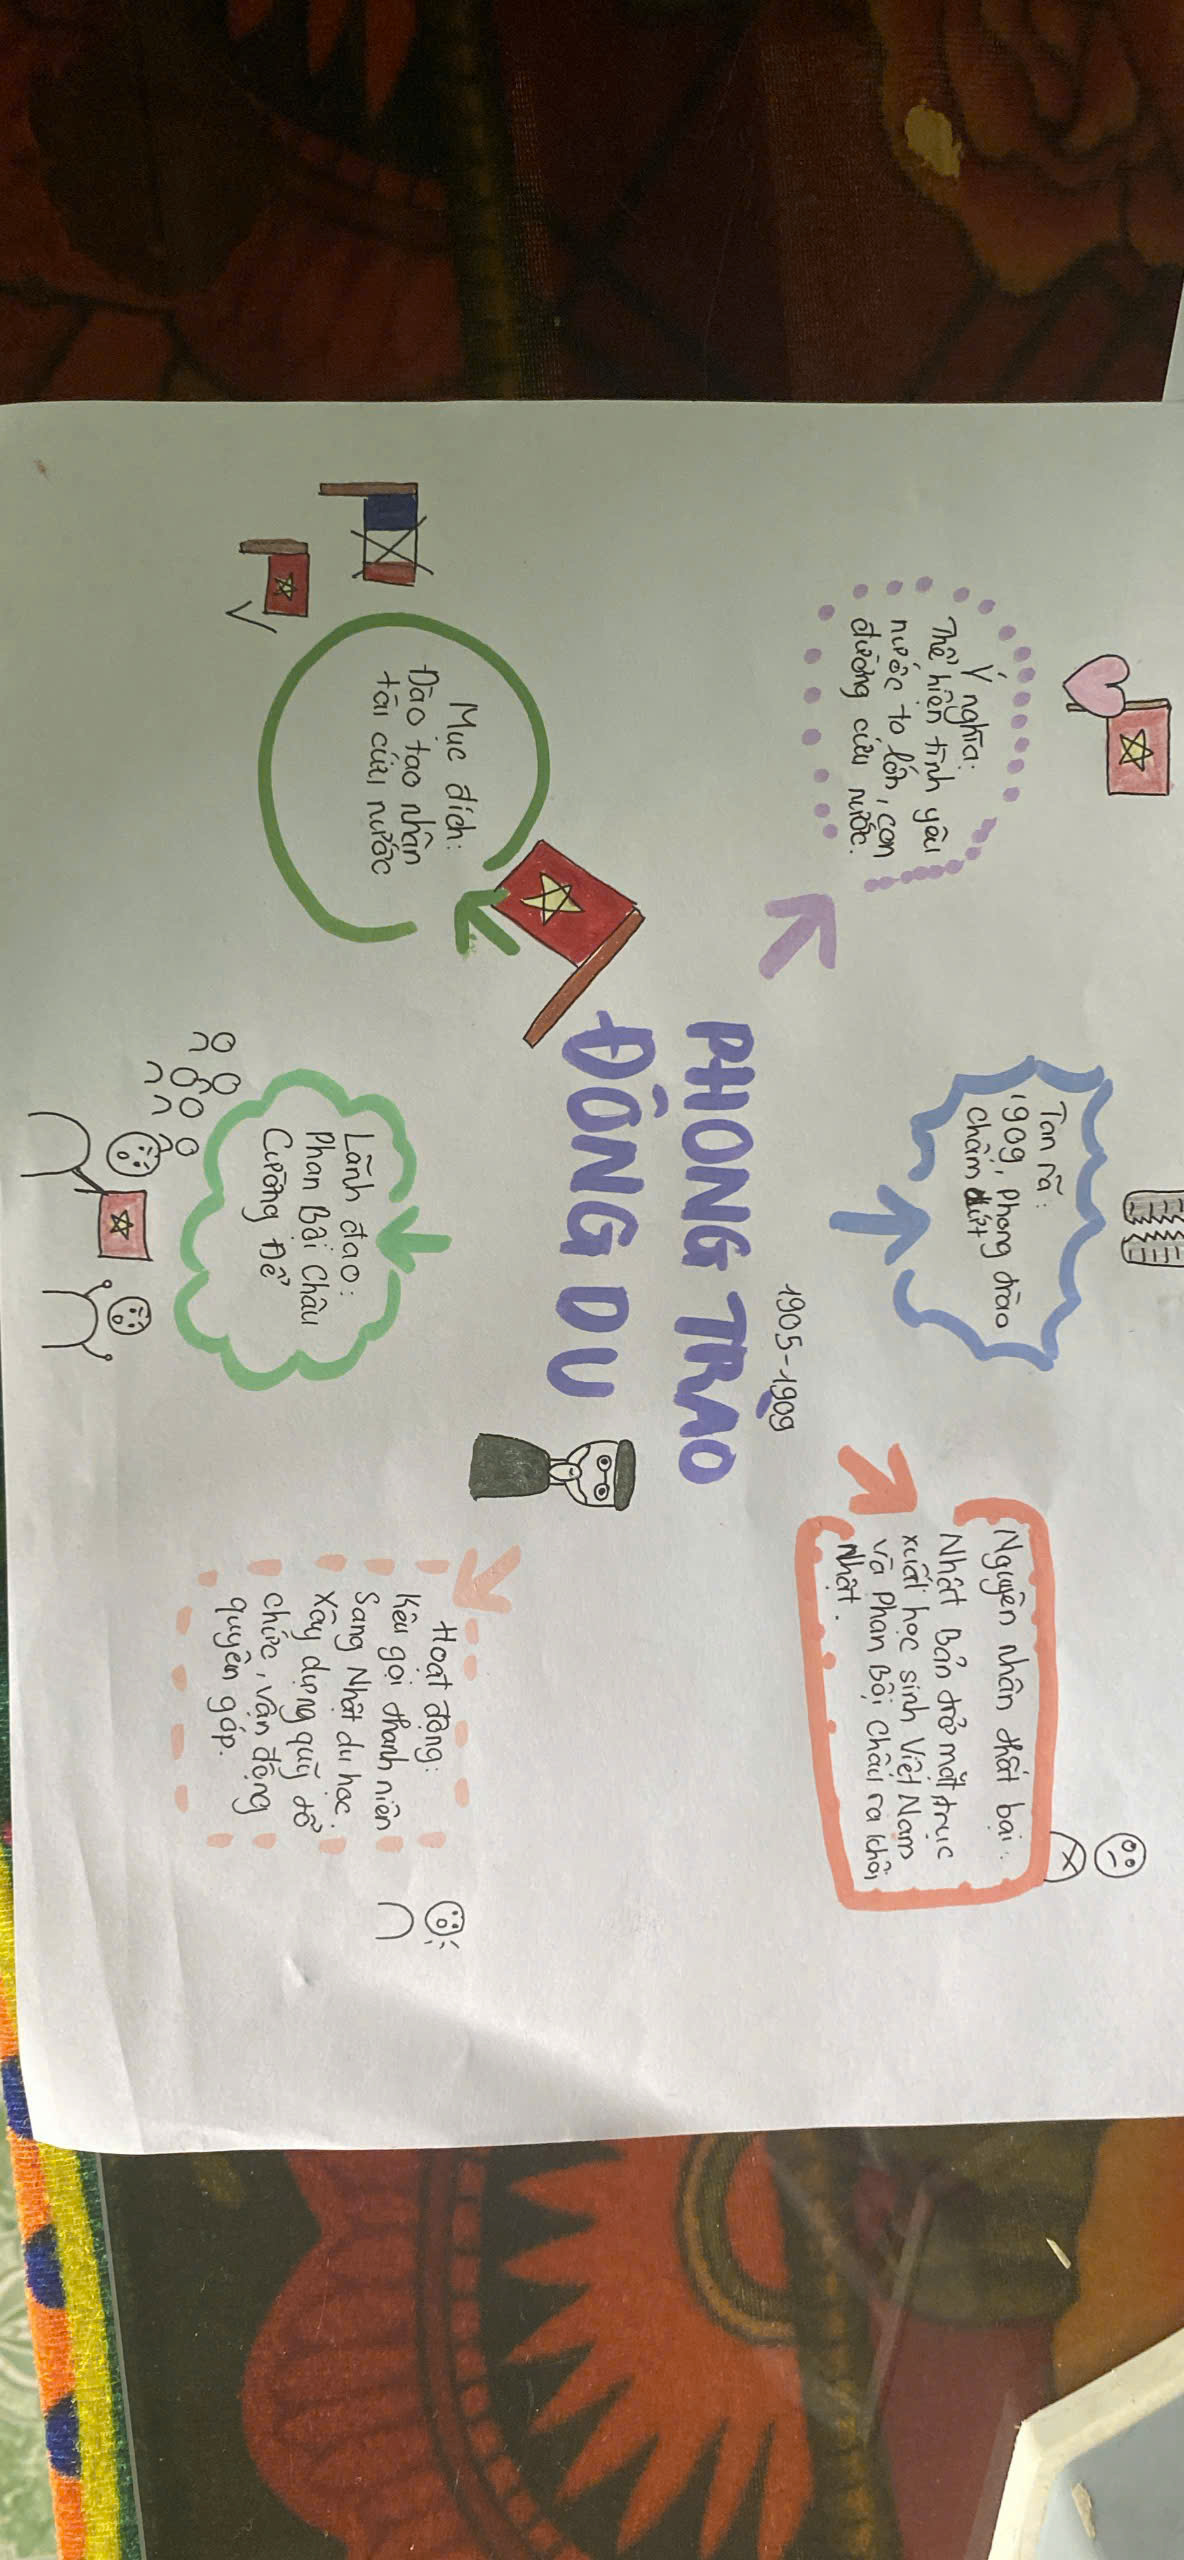 PHONG TRÀO
ĐÔNG DU
1905-1909
Ý nghĩa:
Thể hiện tình yêu
nước to lớn, con
đường cứu nước.
Tan rã:
1909, phong trào
chấm dứt
Nguyên nhân thất bại:
Nhật Bản trở mặt trục
xuất học sinh Việt Nam
và Phan Bội Châu ra khỏi
Nhật.
Mục đích:
Đào tạo nhân
tài cứu nước
Lãnh đạo:
Phan Bội Châu
Cường Để
Hoạt động:
Kêu gọi thanh niên
sang Nhật du học.
Xây dựng quỹ tổ
chức, vận động
quyên góp.